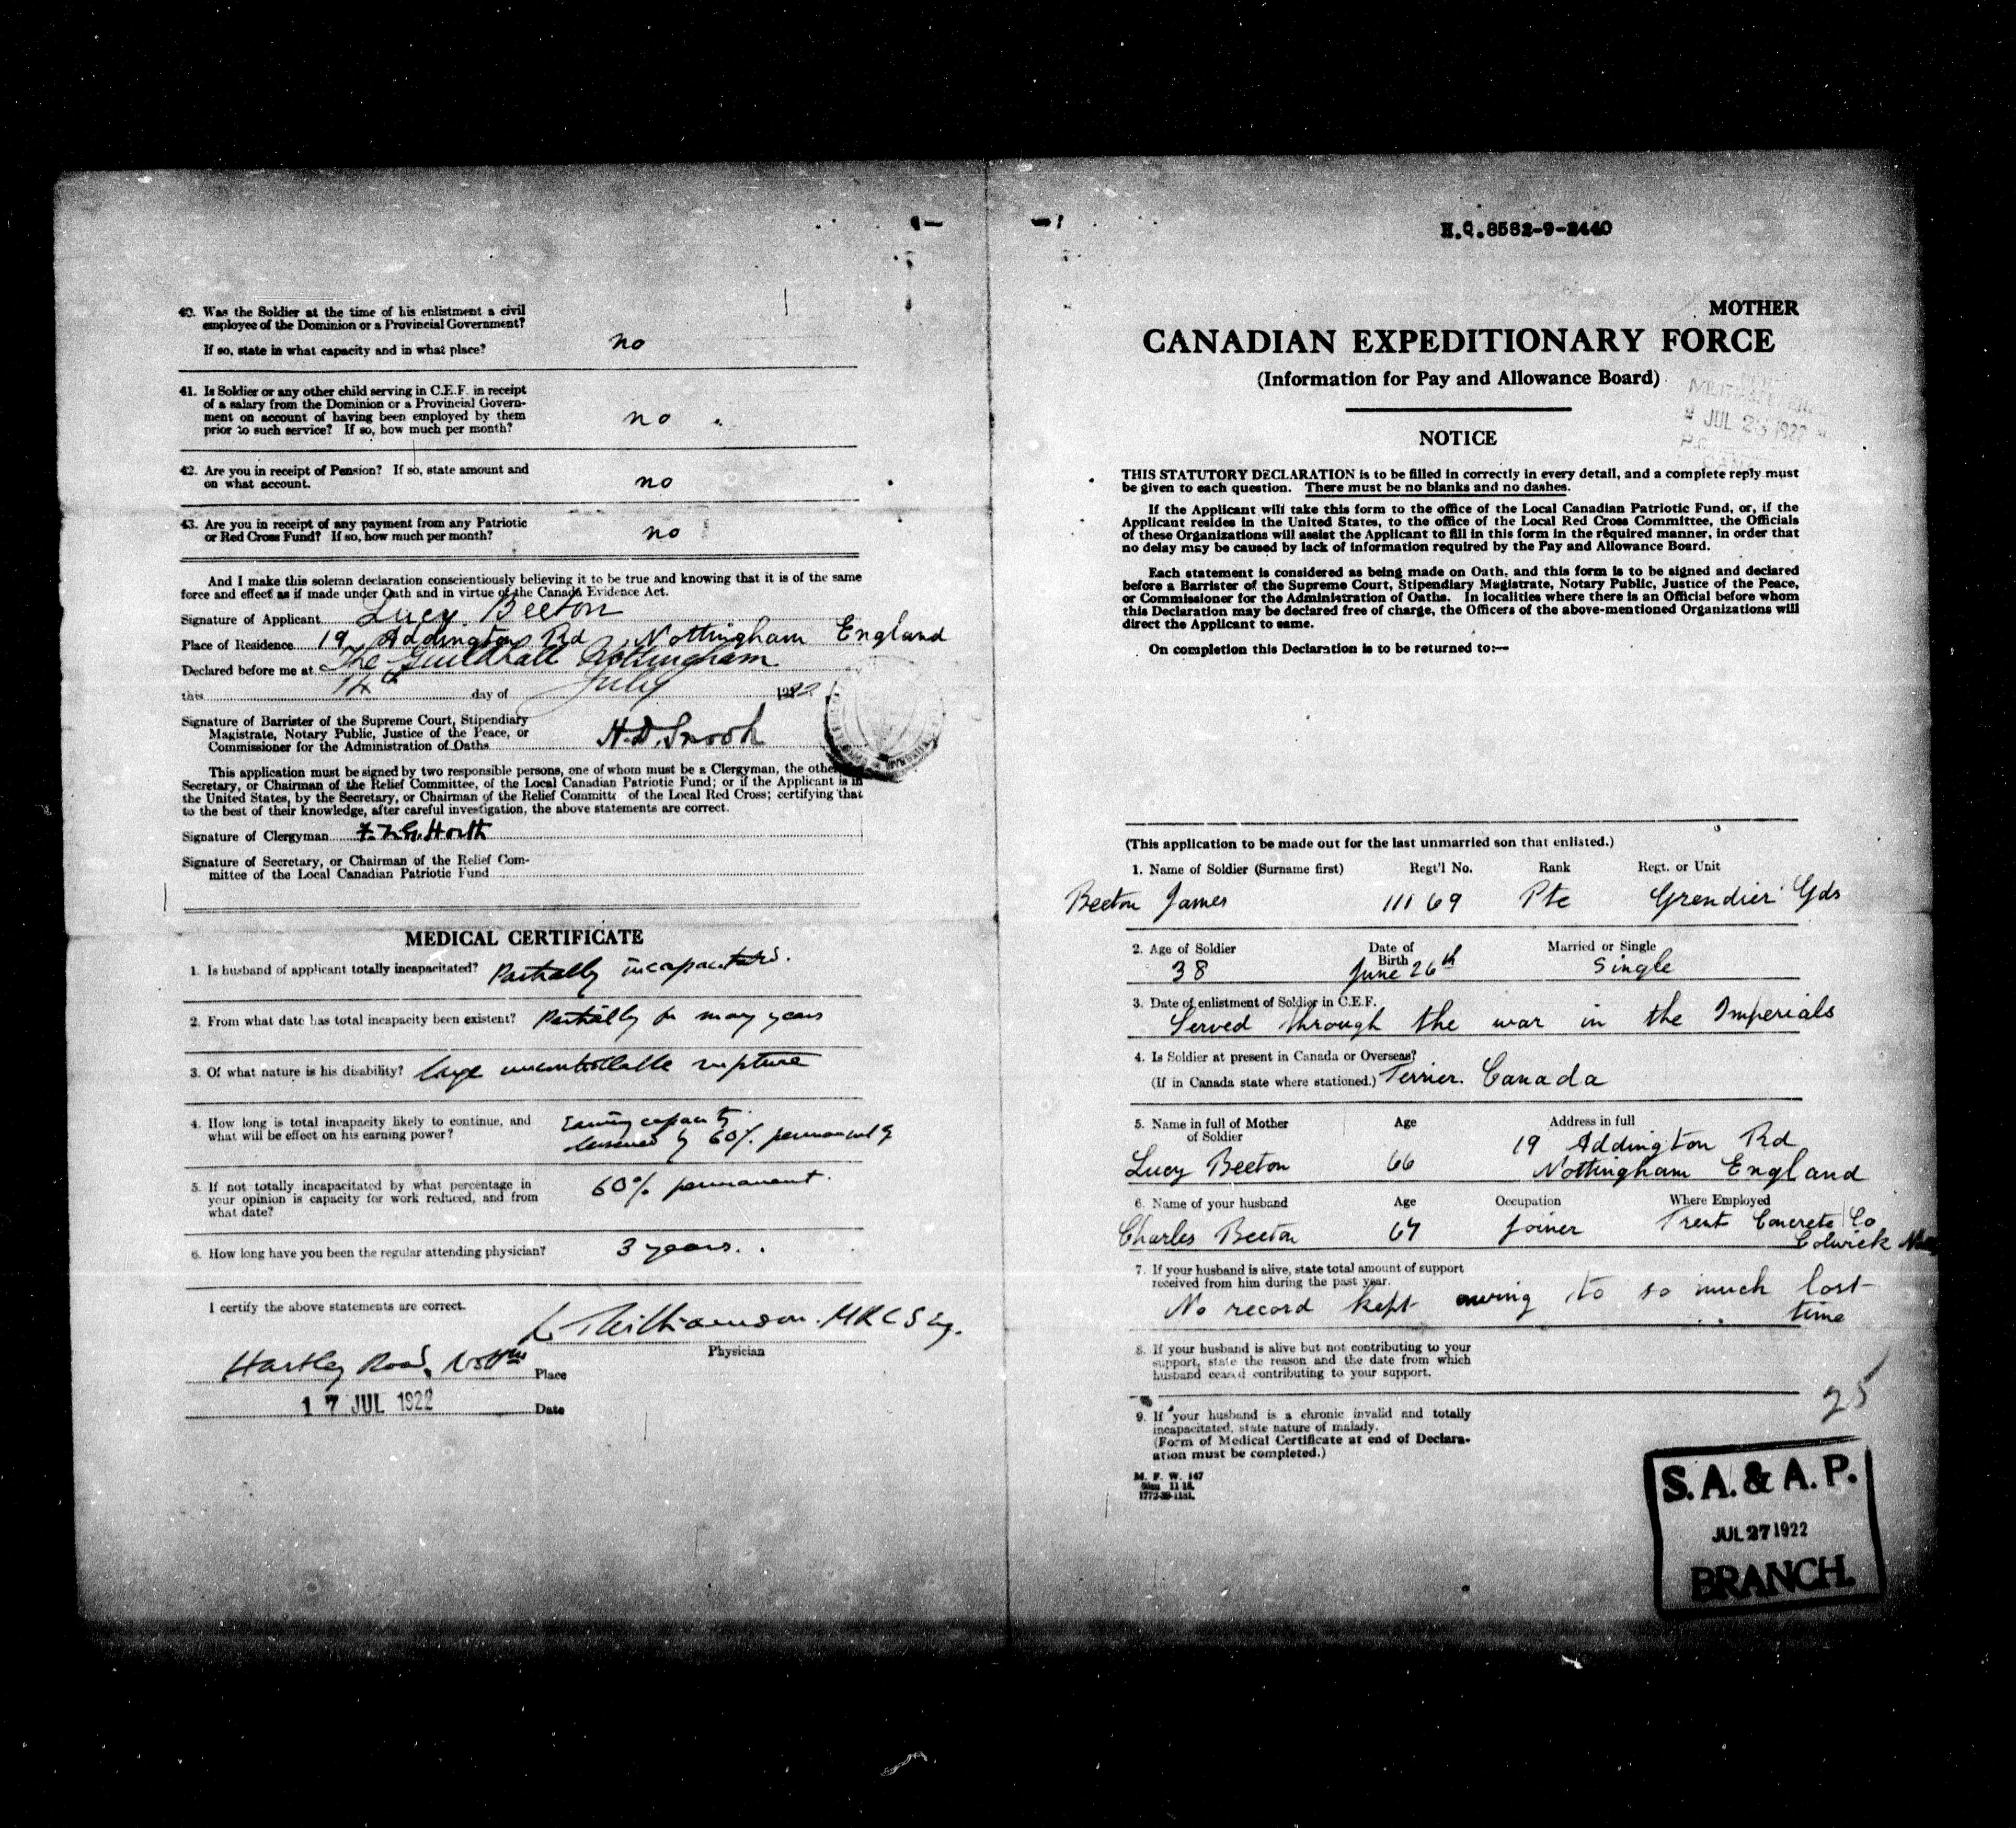 40. Was the Soldier at the time of his enlistment a civil
employee of the Dominion or a Provincial Government?
If so, state in what capacity and in what place?
no
41. Is Soldier or any other child serving in C.E.F. in receipt
of a salary from the Dominion or a Provincial Govern-
ment on account of having been employed by them
prior to such service? If so, how much per month?
no
42. Are you in receipt of Pension? If so, state amount and
on what account.
no
43. Are you in receipt of any payment from any Patriotic
or Red Cross Fund? If so, how much per month?
no
And I make this solemn declaration conscientiously believing it to be true and knowing that it is of the same
force and effect as if made under Oath and in virtue of the Canada Evidence Act.
Signature of Applicant Lucy Beeton
Place of Residence 19 Addington Rd Nottingham England
Declared before me at The Guildhall Nottingham
this 14th day of July 1922
Signature of Barrister of the Supreme Court, Stipendiary
Magistrate, Notary Public, Justice of the Peace, or
Commissioner for the Administration of Oaths H.D. Snook
This application must be signed by two responsible persons, one of whom must be a Clergyman, the other
Secretary, or Chairman of the Relief Committee, of the Local Canadian Patriotic Fund; or if the Applicant is in
the United States, by the Secretary, or Chairman of the Relief Committe of the Local Red Cross; certifying that
to the best of their knowledge, after careful investigation, the above statements are correct.
Signature of Clergyman
Signature of Secretary, or Chairman of the Relief Com-
mittee of the Local Canadian Patriotic Fund
MEDICAL CERTIFICATE
1. Is husband of applicant totally incapacitated? Partially incapacitated.
2. From what date has total incapacity been existent? Partially for many years
3. Of what nature is his disability? large uncontrollable rupture
4. How long is total incapacity likely to continue, and
what will be effect on his earning power?
Earning capacity
lessened by 60% permanently
5. If not totally incapacitated by what percentage in
your opinion is capacity for work reduced, and from
what date?
60% permanent.
6. How long have you been the regular attending physician? 3 years.
I certify the above statements are correct.
Williamson. MRCS Eng.
Physician
Hartley Road, Nottm Place
17 JUL 1922 Date
H.Q. 8582-9-2440
MOTHER
CANADIAN EXPEDITIONARY FORCE
(Information for Pay and Allowance Board)
JUL 26 1922
NOTICE
THIS STATUTORY DECLARATION is to be filled in correctly in every detail, and a complete reply must
be given to each question. There must be no blanks and no dashes.
If the Applicant will take this form to the office of the Local Canadian Patriotic Fund, or, if the
Applicant resides in the United States, to the office of the Local Red Cross Committee, the Officials
of these Organizations will assist the Applicant to fill in this form in the required manner, in order that
no delay may be caused by lack of information required by the Pay and Allowance Board.
Each statement is considered as being made on Oath, and this form is to be signed and declared
before a Barrister of the Supreme Court, Stipendiary Magistrate, Notary Public, Justice of the Peace,
or Commissioner for the Administration of Oaths. In localities where there is an Official before whom
this Declaration may be declared free of charge, the Officers of the above-mentioned Organizations will
direct the Applicant to same.
On completion this Declaration is to be returned to:—
(This application to be made out for the last unmarried son that enlisted.)
1. Name of Soldier (Surname first) Regt'l No. Rank Regt. or Unit
Beeton James 11169 Pte Grendier Gds
2. Age of Soldier Date of Birth Married or Single
38 June 26th Single
3. Date of enlistment of Soldier in C.E.F.
Served through the war in the Imperials
4. Is Soldier at present in Canada or Overseas?
(If in Canada state where stationed.) Terrier. Canada
5. Name in full of Mother Age Address in full
of Soldier
19 Addington Rd
Lucy Beeton 66 Nottingham England
6. Name of your husband Age Occupation Where Employed
Charles Beeton 67 Joiner Trent Concrete Co
Colwick
7. If your husband is alive, state total amount of support
received from him during the past year.
No record kept owing to so much lost
time
8. If your husband is alive but not contributing to your
support, state the reason and the date from which
husband ceased contributing to your support.
25
9. If your husband is a chronic invalid and totally
incapacitated, state nature of malady.
(Form of Medical Certificate at end of Declar-
ation must be completed.)
M. F. W. 147
S.A. & A.P.
JUL 27 1922
BRANCH.